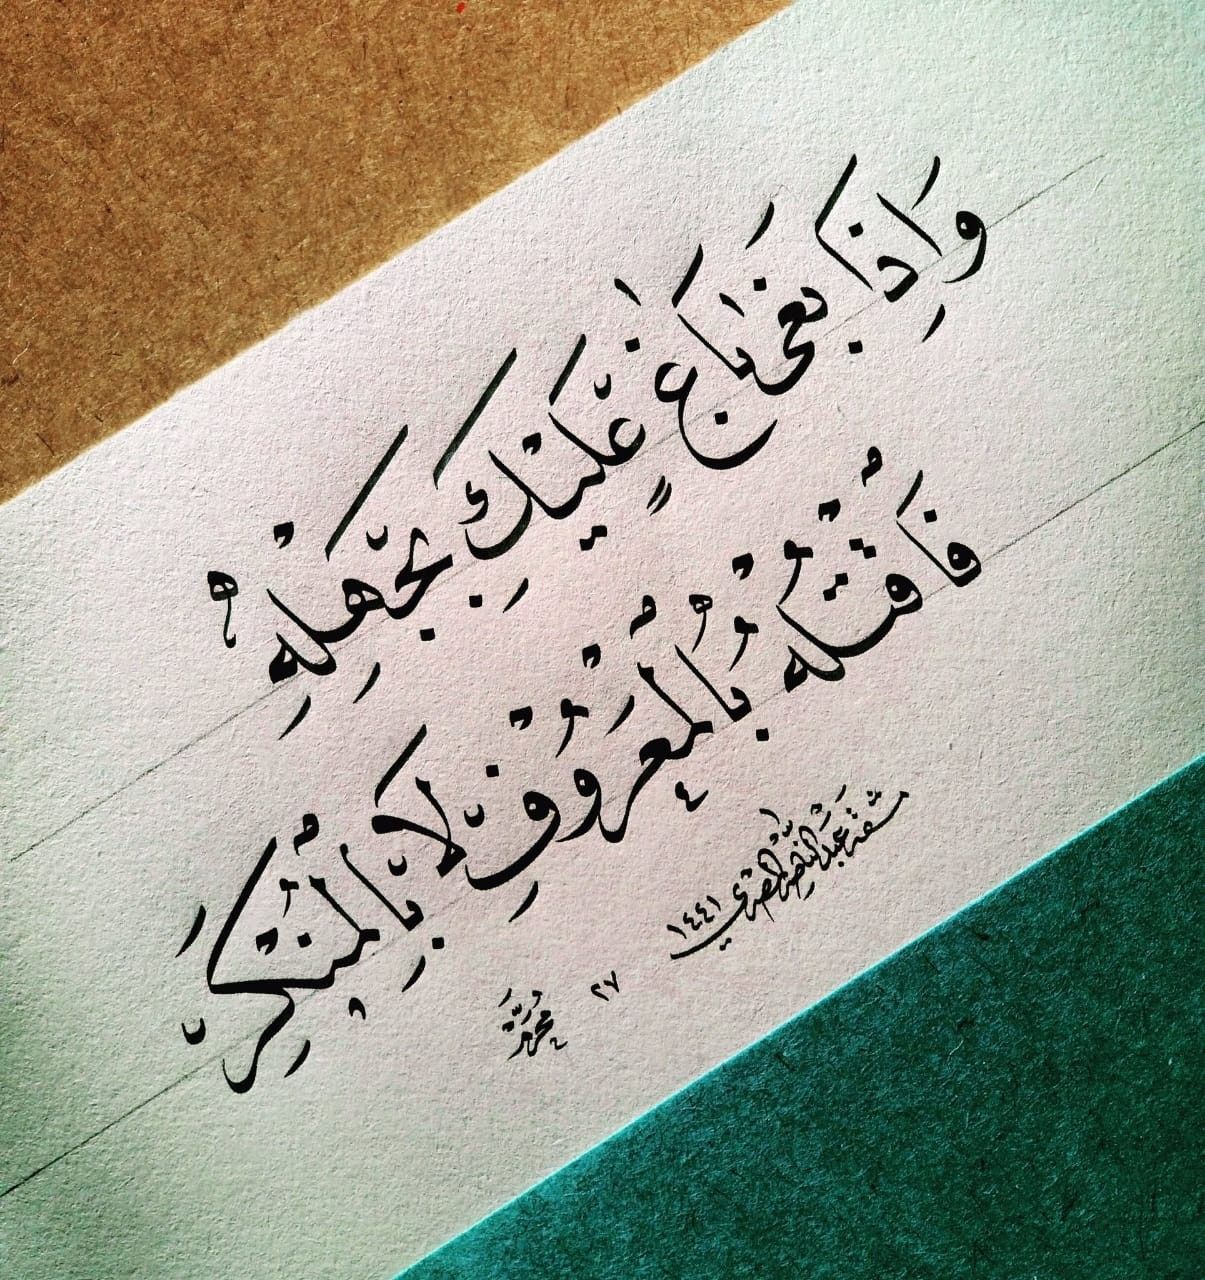 وَإِذَا بَغَى بَاغٍ عَلَيْكَ بِجَهْلِهِ
فَاقْتُلْهُ بِالْمَعْرُوفِ لَا بِالْمُنْكَرِ
عبد الناصر المصري ١٤٤١
٢٧ محرم